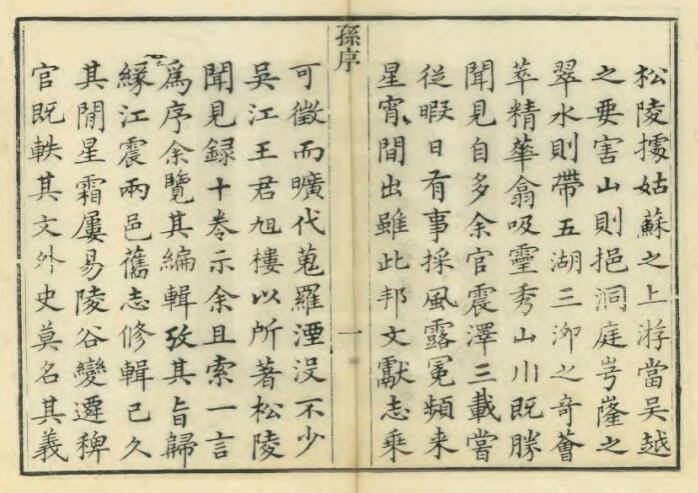 松陵據姑蘇之上游當吳越
之要害山則挹洞庭岢𡾋之
翠水則帶五湖三泖之奇薈
萃精華翕吸靈秀山川既勝
聞見自多余官震澤三載嘗
從暇日有事採風露冕頻来
星宵間出雖此邦文獻志乘
孫序
一
可徵而曠代蒐羅湮没不少
吳江王君旭樓以所著松陵
聞見録十卷示余且索一言
為序余覽其編輯攷其旨歸
緣江震兩邑舊志修輯已久
其閒星霜屢易陵谷變遷稗
官既軼其文外史莫名其義